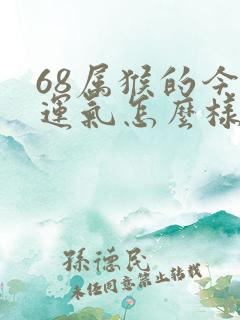 68属猴的今
運氣怎麼樣
孫德民
未经同意禁止转载